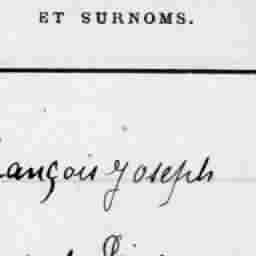 ET SURNOMS.
ançois Joseph